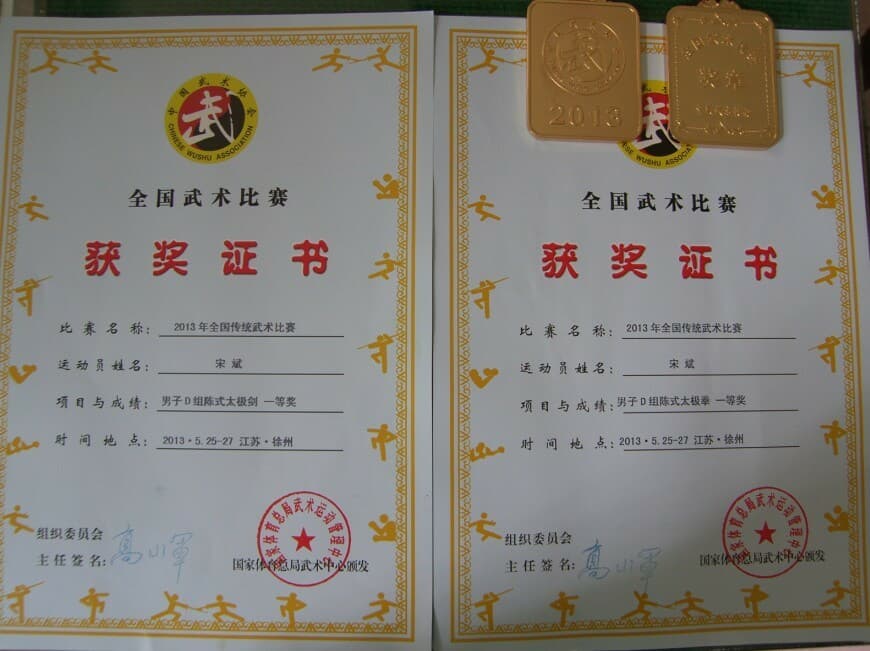 中国武术协会
CHINESE WUSHU ASSOCIATION
全国武术比赛
获奖证书
比赛名称: 2013年全国传统武术比赛
运动员姓名: 宋斌
项目与成绩: 男子D组陈式太极剑 一等奖
时间地点: 2013·5.25-27 江苏·徐州
组织委员会
主任签名: 高小军
国家体育总局武术运动管理中心
国家体育总局武术中心颁发
2013
奖章
武
CHINESE WUSHU ASSOCIATION
全国武术比赛
获奖证书
比赛名称: 2013年全国传统武术比赛
运动员姓名: 宋斌
项目与成绩: 男子D组陈式太极拳 一等奖
时间地点: 2013·5.25-27 江苏·徐州
组织委员会
主任签名: 高小军
国家体育总局武术运动管理中心
国家体育总局武术中心颁发